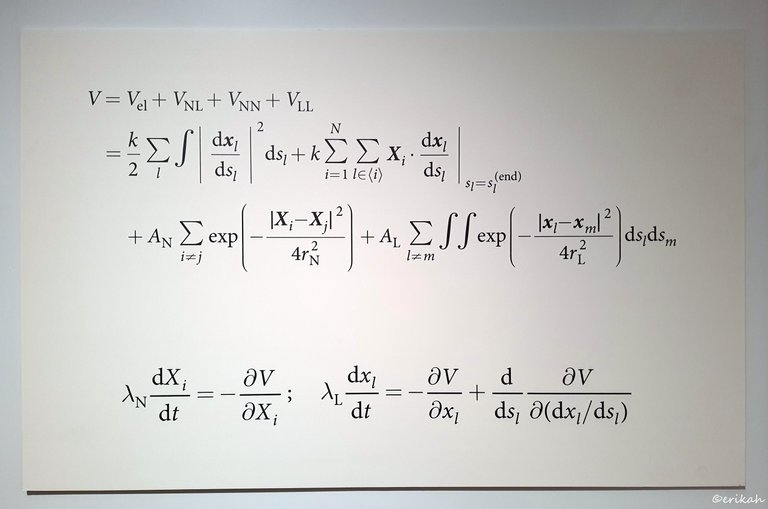 V = V_el + V_NL + V_NN + V_LL
= k/2 ∑_l ∫ | d𝒙_l/ds_l |² ds_l + k ∑_{i=1}^{N} ∑_{l∈⟨i⟩} 𝑿_i · d𝒙_l/ds_l |_{s_l=s_l^(end)}
+ A_N ∑_{i≠j} exp( − |𝑿_i−𝑿_j|² / 4r_N² ) + A_L ∑_{l≠m} ∫∫ exp( − |𝒙_l−𝒙_m|² / 4r_L² ) ds_l ds_m
λ_N dX_i/dt = − ∂V/∂X_i ; λ_L dx_l/dt = − ∂V/∂x_l + d/ds_l ∂V/∂(dx_l/ds_l)
©erikah